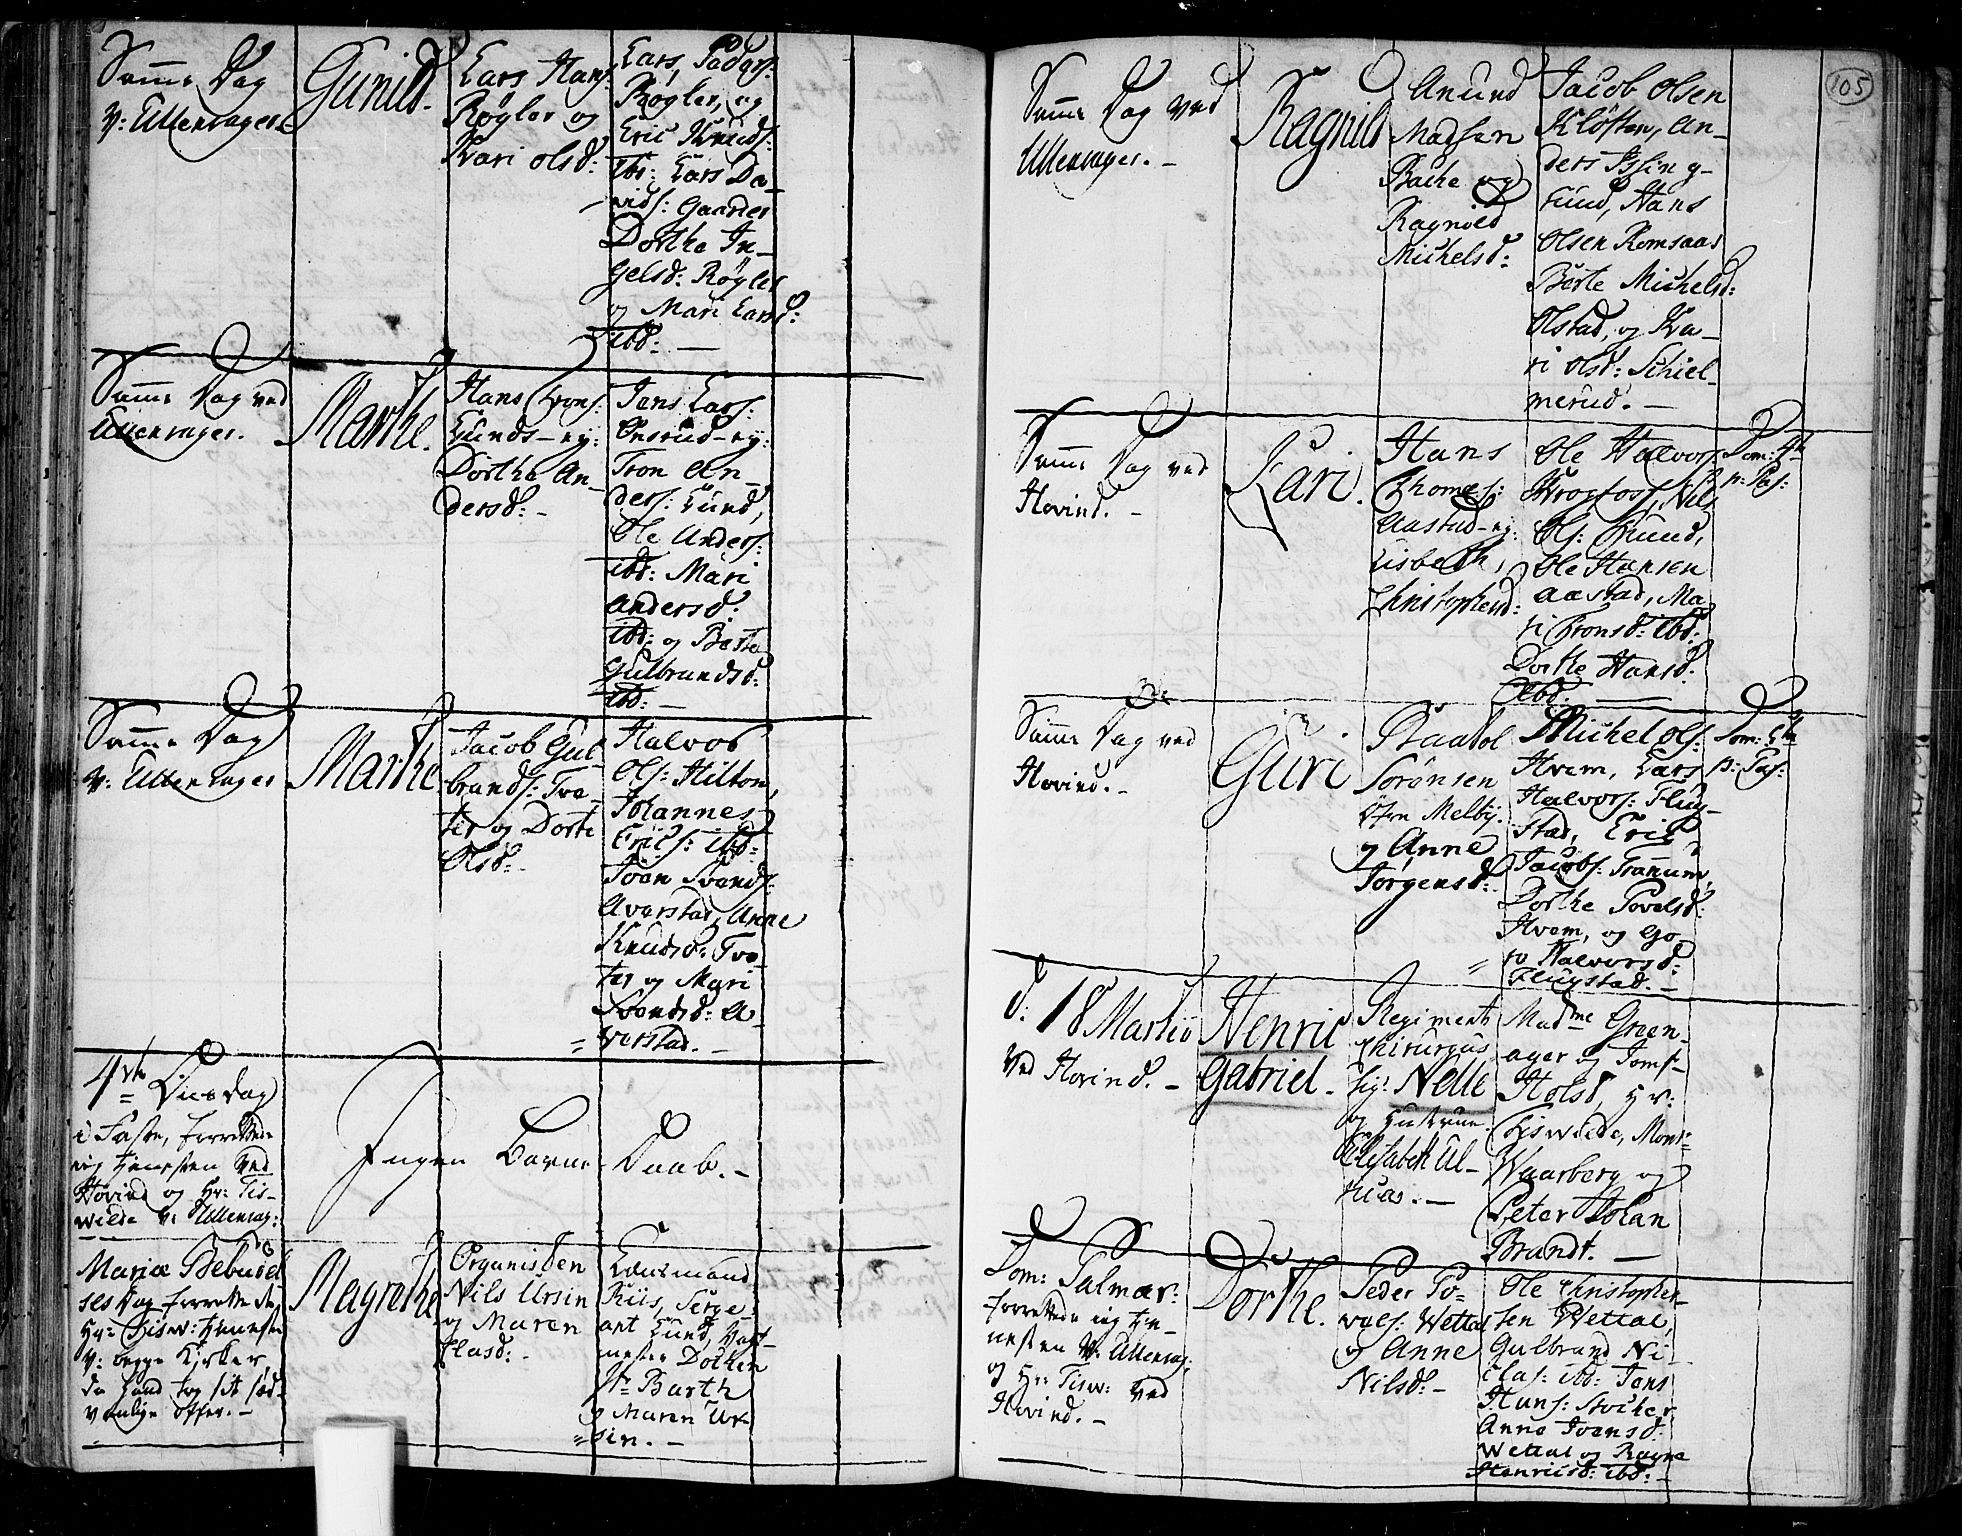 Samme Dag
v: Ullensager.
Gunild.
Lars Hans:
Røgler og
Kari Olsd:
Lars Peders:
Røgler, og
Eric Knuds:
ibd: Lars Da-
vids: Gaarder
Dorthe In-
gelsd: Røgler
og Mari Larsd:
ibd: —
Samme Dag ved
Ullensager.
Marthe.
Hans Trons:
Lunds-ey:
Dorthe An-
dersd: -
Jens Lars:
Onsrud-ey:
Tron An-
ders: Lund,
Ole Anders:
ibd: Mari
Andersd:
ibd: og Berte
Gulbrandsd:
ibd: —
Samme Dag
v: Ullensager
Marthe
Jacob Gul-
brands: Tve-
ter og Dorte
Olsd: -
Halvor
Ols: Hilton,
Johannes
Erics: ibd:
Joen Svends:
Averstad, Anne
Knudsd: Tve-
ter og Mari
Svendsd: A-
verstad. —
4de Tiesdag
i Faste, forrettede
ieg tienesten ved
Hovind og Hr: Tis-
wilde v: Ullensag:
Ingen Børne Daab. -
Mariæ Bebudel-
ses Dag forrettede
Hr: Tisw: tieneste
v: begge Kirker,
da hand tog sit sæd-
vanlige offer. -
Magrethe
Organisten
Nils Ursin
og Maren
Flasd: -
Lænsmand
Riis, Serge-
ant Lund,
mester Dothen
Barth
og Maren Ur-
sin. —
105
Samme Dag ved
Ullensager. -
Ragnild
Anund
Madsen
Bache og
Ragnild
Michelsd:
Jacob Olsen
Kløften, An-
ders Issing-
rud, Hans
Olsen Romsaas
Berte Michelsd:
Olstad, og Ka-
ri Olsd: Schiel-
merud. —
Samme Dag ved
Hovind. -
Kari.
Hans
Thomes:
Aastad-ey:
Lisbeth
Christophersd:
Ole Halvors:
Krogfoss, Nils
Ols: Lund,
Ole Hansen
Aastad, Ma-
ri Tronsd: ibd:
Dorthe Hansd:
ibd: —
Dom: 4ta
p: Pas:
Samme Dag ved
Hovind. -
Guri
Staatol
Sørensen
Melby.
og Anne
Jørgensd:
Michel Ols:
Hvam, Lars
Halvors: Flug-
stad, Eric
Jacobs: Tranum,
Dorthe Povelsd:
Hvam, og Go-
ro Halvorsd:
Flugstad. —
Dom: 5ta
p: Pas:
d: 18 Martii
ved Hovind. -
Henric
Gabriel -
Regiments
Chirurgus
Sig: Nelle
og Hustrue
Elisabeth Ul-
ricas. —
Madme Green-
ager og Jomf-
Holst, Hr:
Tiswilde, Mons:
Waarberg og
Peter Johan
Brandt. —
Dom: Palmar:
forrettede ieg tie-
nesten v: Ullensag:
og Hr: Tisw: ved
Hovind. -
Dorthe.
Peder Po-
vels: Wettal
og Anne
Nilsd: -
Ole Christopher-
sen Wettal,
Gulbrand Ni-
clas: ibd: Jens
Hans: Stocher
Anne Joensd:
Wettal og Ragne
Henricsd: ibd: -